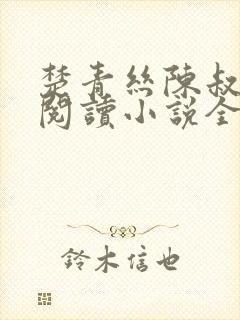 楚青絲陳叔
閱讀小說全
鈴木信也